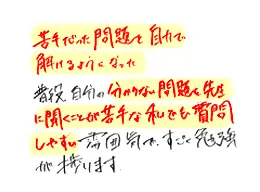 苦手だった問題も自力で
解けるようになった
普段自分の分からない問題を先生
に聞くことが苦手な私でも質問
しやすい雰囲気で、すごく勉強
が捗ります